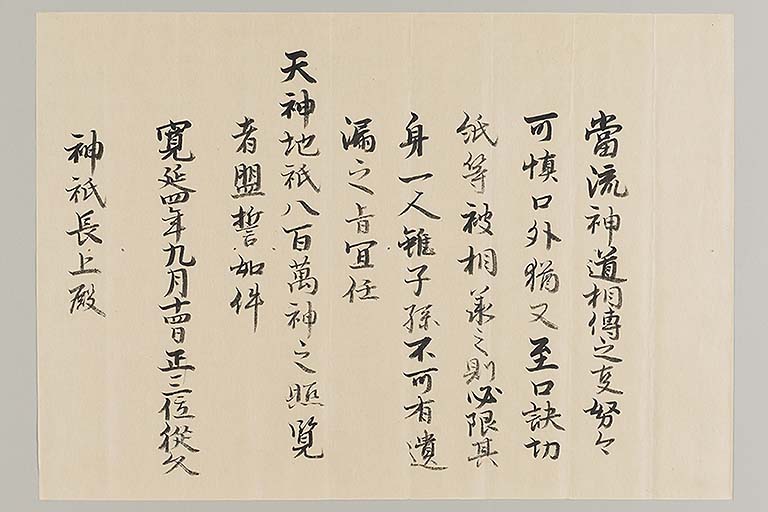 當流神道相傳之亊努々
可慎口外猶又至口訣切
紙等被相承之則必限其
身一人雖子孫不可有遺
漏之旨宜任
天神地祇八百萬神之照覧
者盟誓如件
寛延四年九月十四日正三位從久
神祇長上殿